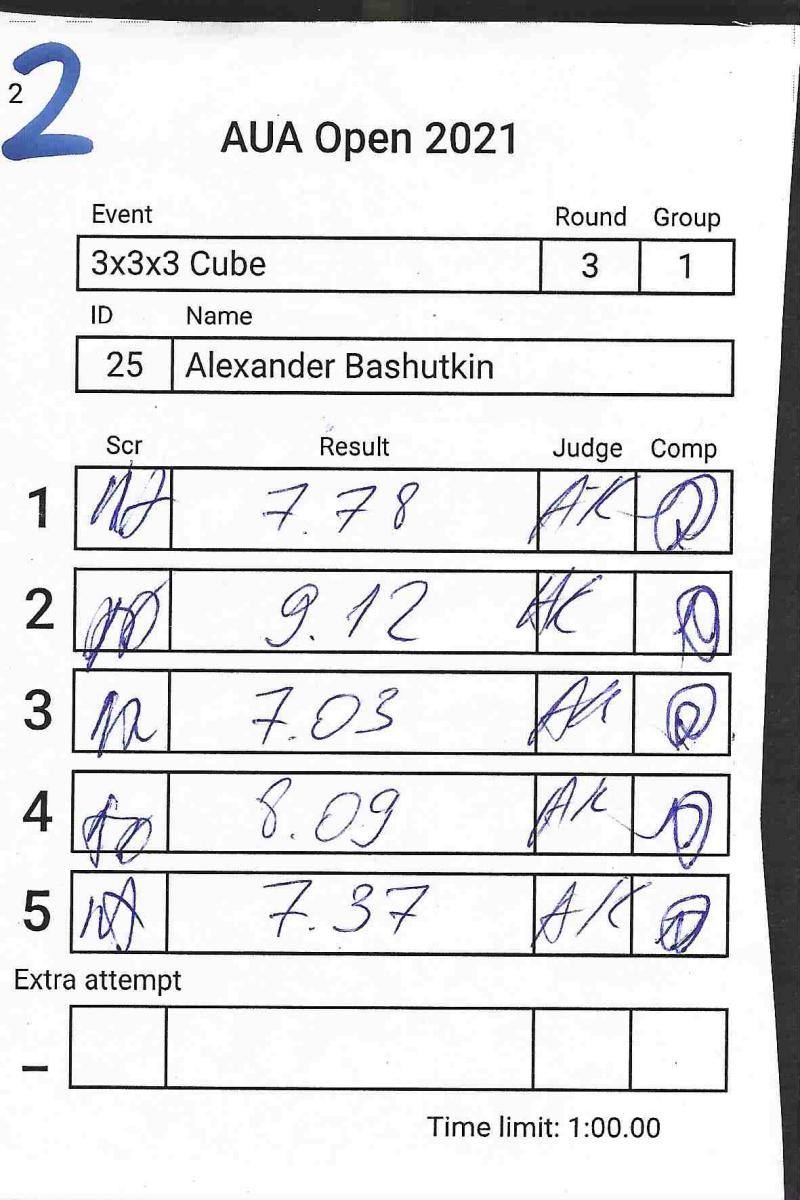 2
2
AUA Open 2021
Event Round Group
3x3x3 Cube 3 1
ID Name
25 Alexander Bashutkin
Scr Result Judge Comp
1 7.78 AK
2 9.12 AK
3 7.03 AK
4 8.09 AK
5 7.37 AK
Extra attempt
–
Time limit: 1:00.00